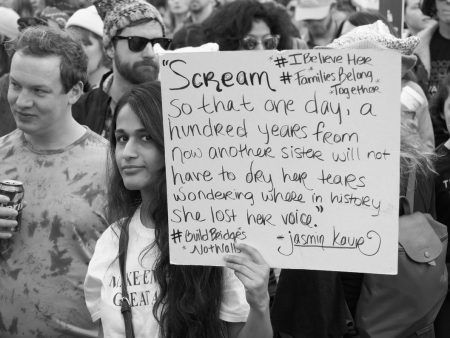 #I Believe Here
"Scream #Families Belong
Together
so that one day, a
hundred years from
now another sister will not
have to dry her tears
wondering where in history
she lost her voice."
#Build Bridges
Not Walls
- jasmin kaur
MAKE
GREAT